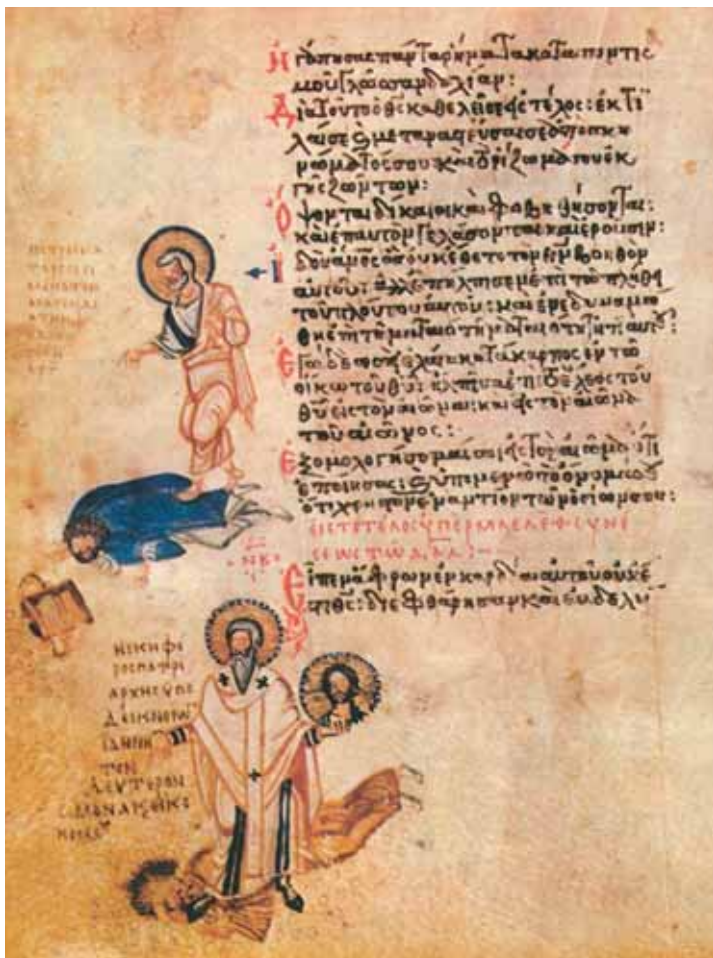 Ἠγάπησας πάντα τὰ ῥήματα καταποντισ
μοῦ γλῶσσαν δολίαν:
Διὰ τοῦτο ὁ θς καθελεῖ σε εἰς τέλος: ἐκτί
λαι σε καὶ μεταναστεύσαι σε ἀπὸ σκη
νώματός σου καὶ τὸ ῥίζωμά σου ἐκ
γῆς ζώντων:
Ὄψονται δίκαιοι καὶ φοβηθήσονται:
καὶ ἐπ αὐτὸν γελάσονται καὶ ἐροῦσιν:
Ἰδοὺ ἄνος ὃς οὐκ ἔθετο τὸν θν βοηθὸν
αὐτοῦ: ἀλλ ἐπήλπισεν ἐπὶ τῶ πλήθει
τοῦ πλούτου αὐτοῦ: καὶ ἐνεδυναμώ
θη ἐπὶ τῆ ματαιότητι αὐτοῦ:
Ἐγὼ δὲ ὡσεὶ ἐλαία κατάκαρπος ἐν τῶ
οἴκω τοῦ θυ: ἤλπισα ἐπὶ τὸ ἔλεος τοῦ
θυ εἰς τὸν αἰῶνα: καὶ εἰς τὸν αἰῶνα
τοῦ αἰῶνος:
Ἐξομολογήσομαί σοι εἰς τὸν αἰῶνα ὅτι
ἐποίησας: καὶ ὑπομενῶ τὸ ὄνομά σου
ὅτι χρηστὸν ἐναντίον τῶν ὁσίων σου:
εἰς τὸ τέλος ὑπὲρ μαελεθ συνέ
σεως τῶ δαδ:
ΝΒ
Εἶπεν ἄφρων ἐν καρδία αὐτοῦ οὐκ ἔ
στι θς: διεφθάρησαν καὶ ἐβδελύ
ΝΙΚΗΦΟ
ΡΟΣ ΠΑΤΡΙ
ΑΡΧΗΣ ΥΠΟ
ΔΕΙΚΝΟΝ
ΙΑΝΝΗ
ΤΟΝ
ΔΕΥΤΕΡΟΝ
ΣΙΜΟΝΑ Κ ΕΙΚΟ